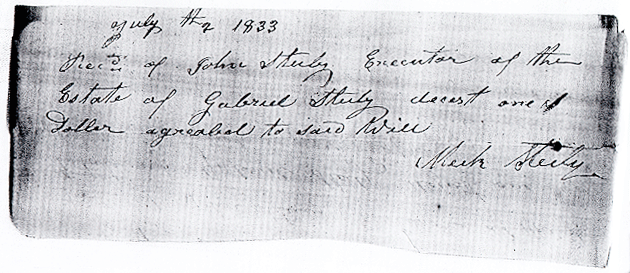 July th 2 1833
Recd of John Steely Executor of the
Estate of Gabriel Steely decest one
Doller agreabel to said Will
Meek Steely